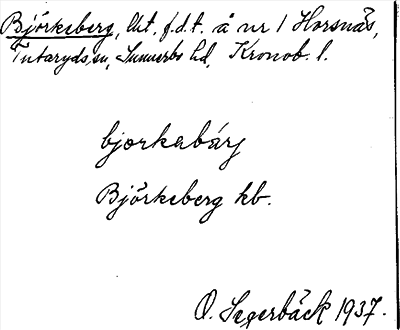 Björkeberg, lht. f.d.t. å nr 1 Horsnäs,
Tutaryds sn, Sunnerbo hd, Kronob. l.
bjorkabárj
Björkeberg kb.
O. Segerbäck 1937.